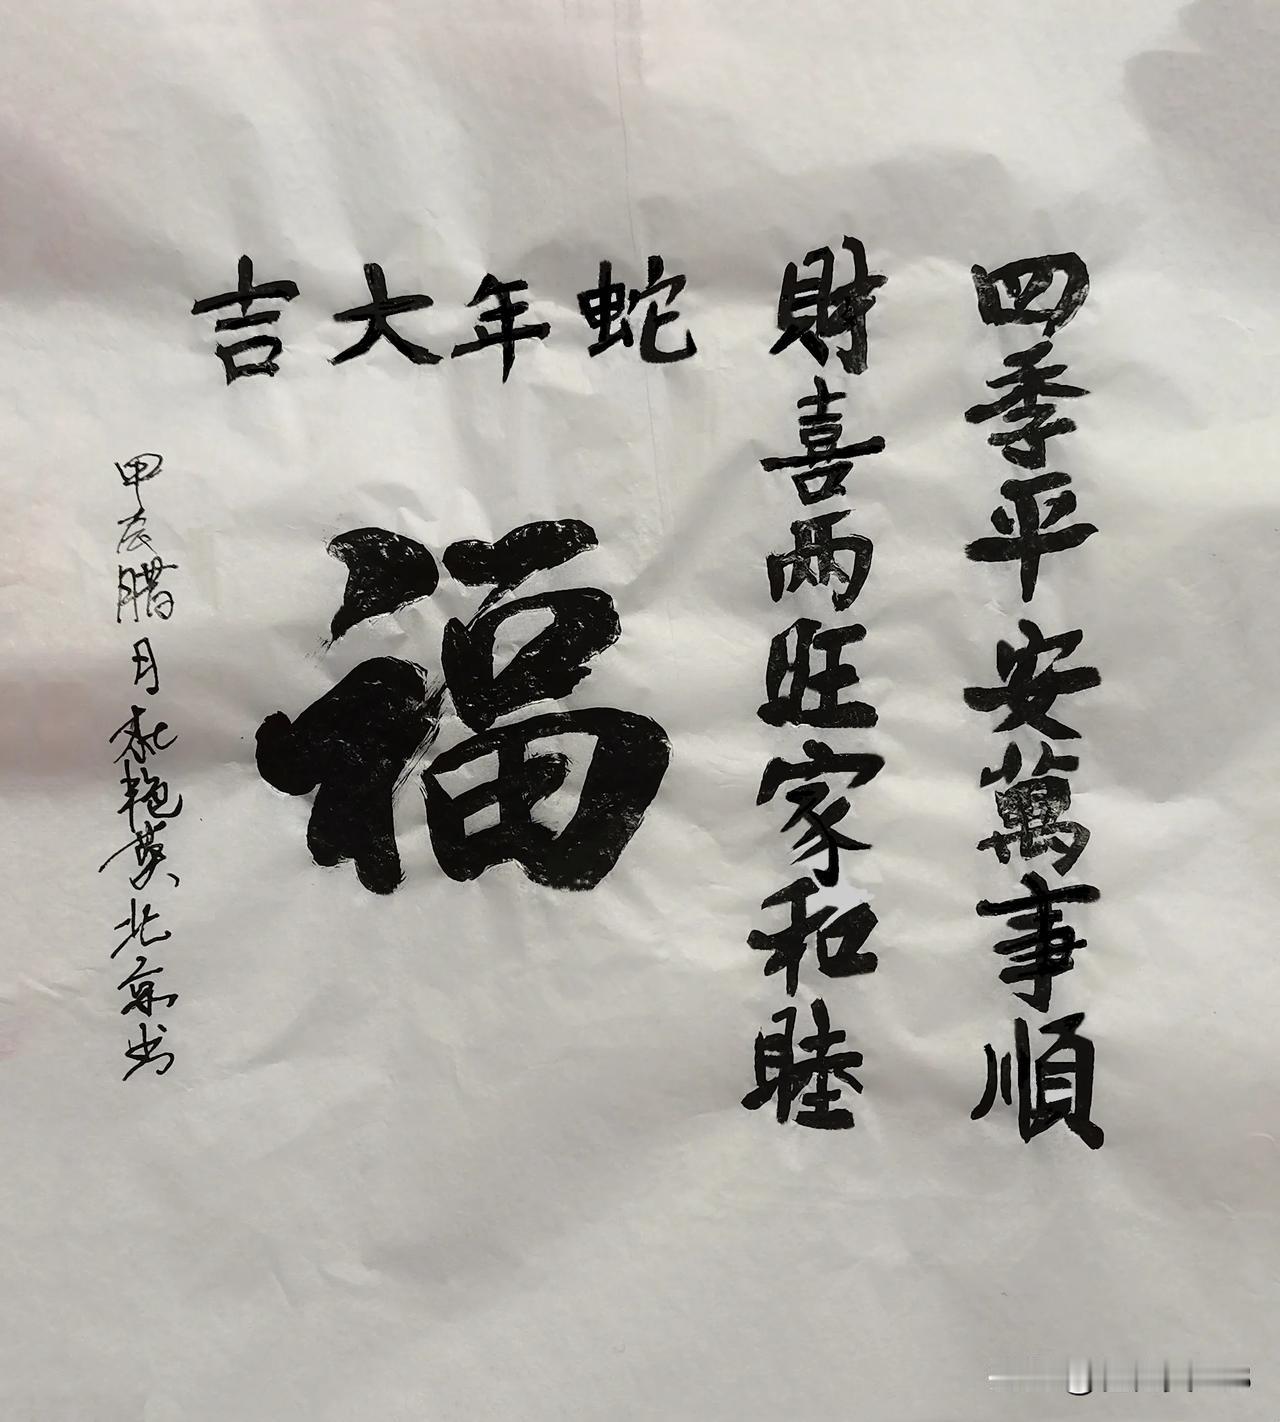 四季平安萬事順
財喜兩旺家和睦
蛇年大吉
福
甲辰腊月 艳英北京书